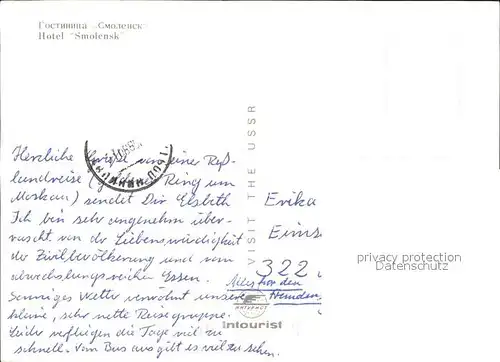 Гостиница „Смоленск"
Hotel "Smolensk"
Herzliche Grüße von einer Ruß-
landreise (goldener Ring um
Moskau) sendet Dir Elsbeth
Ich bin sehr angenehm über-
rascht von der Liebenswürdigkeit
der Zivilbevölkerung und vom
abwechslungsreichen Essen.
Sonniges Wetter verwöhnt unsere
kleine, sehr nette Reisegruppe.
Leider verfliegen die Tage viel zu
schnell. Vom Bus aus gibt es viel zu sehen.
VISIT THE USSR
Intourist
Erika
Eims
322
Alles vor den
Fremden
privacy protection
Datenschutz